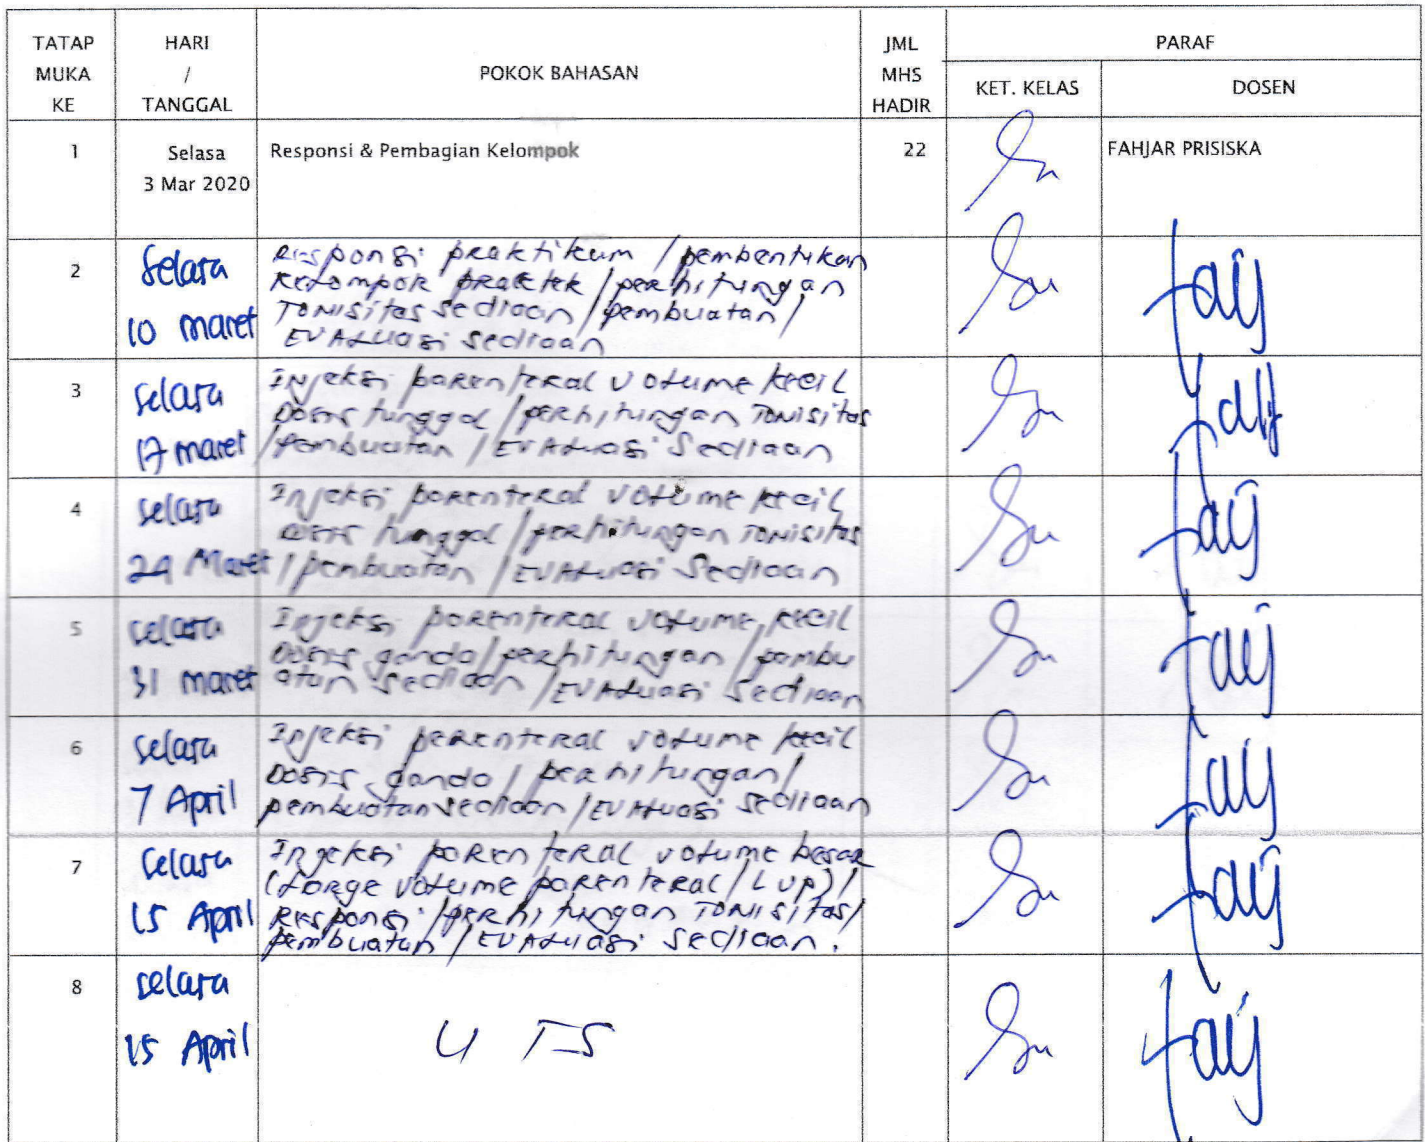 TATAP MUKA KE
HARI / TANGGAL
POKOK BAHASAN
JML MHS HADIR
PARAF
KET. KELAS
DOSEN
1
Selasa
3 Mar 2020
Responsi & Pembagian Kelompok
22
FAHJAR PRISISKA
2
Selasa
10 maret
Responsi praktikum / pembentukan
Kelompok praktek / perhitungan
Tonisitas sediaan / pembuatan /
EVALuasi sediaan
3
selasa
17 maret
Injeksi parenteral volume kecil
Dosis tunggal / perhitungan Tonisitas
/ pembuatan / EVALuasi Sediaan
4
selasa
24 Maret
Injeksi parenteral volume kecil
Dosis tunggal / perhitungan Tonisitas
/ pembuatan / EVALuasi Sediaan
5
selasa
31 maret
Injeksi parenteral volume kecil
Dosis ganda / perhitungan / pembu
atan Sediaan / EVALuasi Sediaan
6
selasa
7 April
Injeksi parenteral volume kecil
Dosis ganda / perhitungan /
pembuatan sediaan / EVALuasi Sediaan
7
selasa
15 April
Injeksi parenteral volume besar
(Large volume parenteral / LVP) /
Responsi / perhitungan Tonisitas /
pembuatan / EVALuasi Sediaan.
8
selasa
15 April
UTS